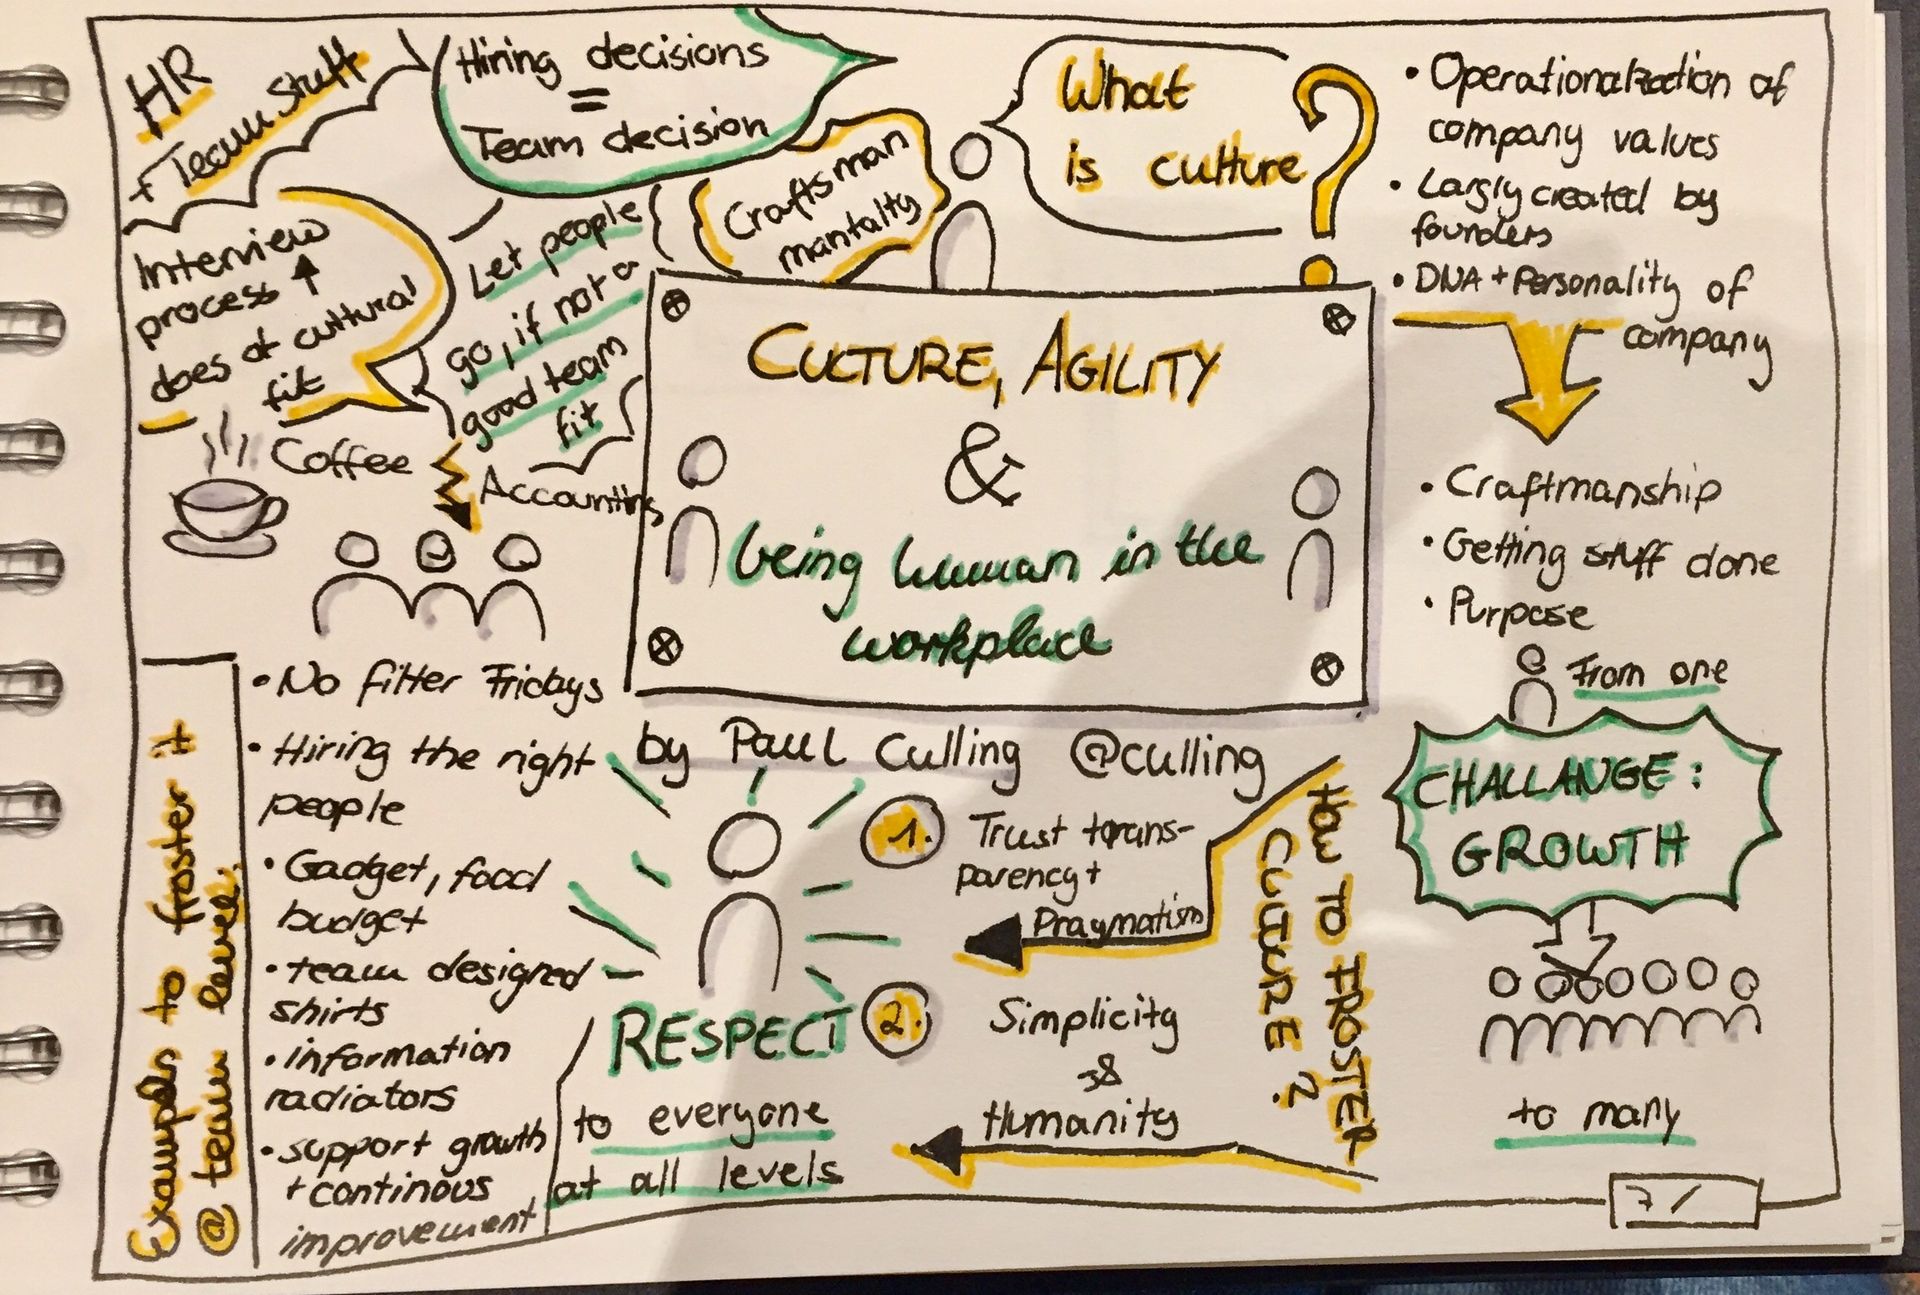 HR
+ Team stuff
Hiring decisions
=
Team decision
Craftsman
mantality
What
is culture?
• Operationalization of
company values
• Largly created by
founders
• DNA + Personality of
company
Interview
process
does of cultural
fit
Let people
go, if not a
good team
fit
Coffee
Accounting
CULTURE, AGILITY
&
being human in the
workplace
by Paul Culling @culling
• Craftmanship
• Getting stuff done
• Purpose
From one
CHALLANGE:
GROWTH
to many
Examples to froster it
@ team level
• No filter Fridays
• Hiring the right
people
• Gadget, food
budget
• team designed
shirts
• information
radiators
• support growth
+ continous
improvement
RESPECT
to everyone
at all levels
HOW TO FROSTER
CULTURE?
1. Trust trans-
parency +
Pragmatism
2. Simplicity
&
Humanity
7/